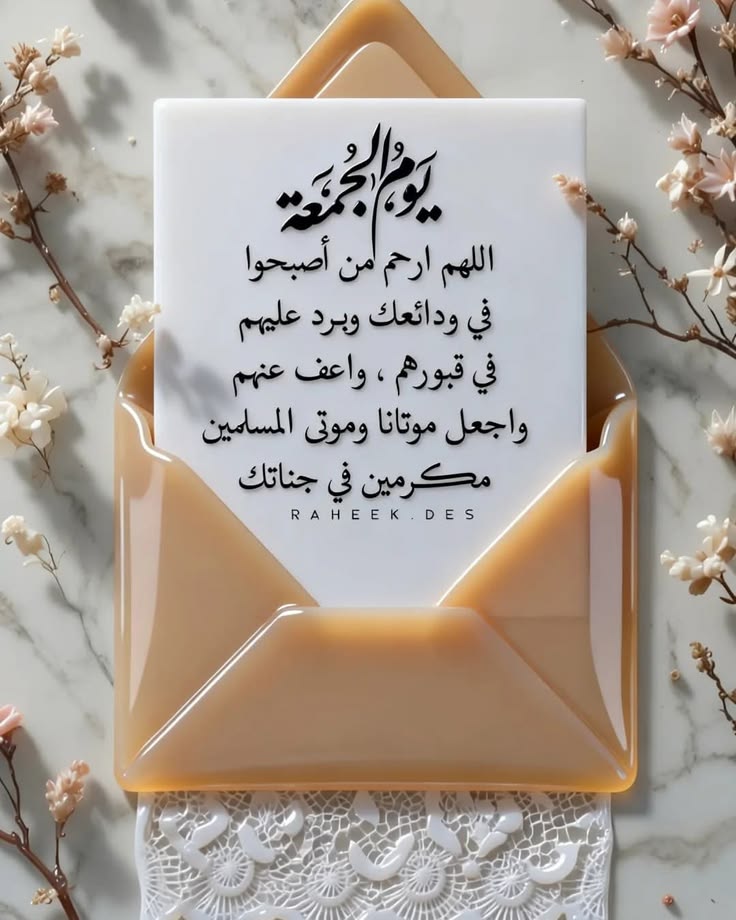 يوم الجمعة
اللهم ارحم من أصبحوا
في ودائعك وبرد عليهم
في قبورهم ، واعف عنهم
واجعل موتانا وموتى المسلمين
مكرمين في جناتك
RAHEEK.DES